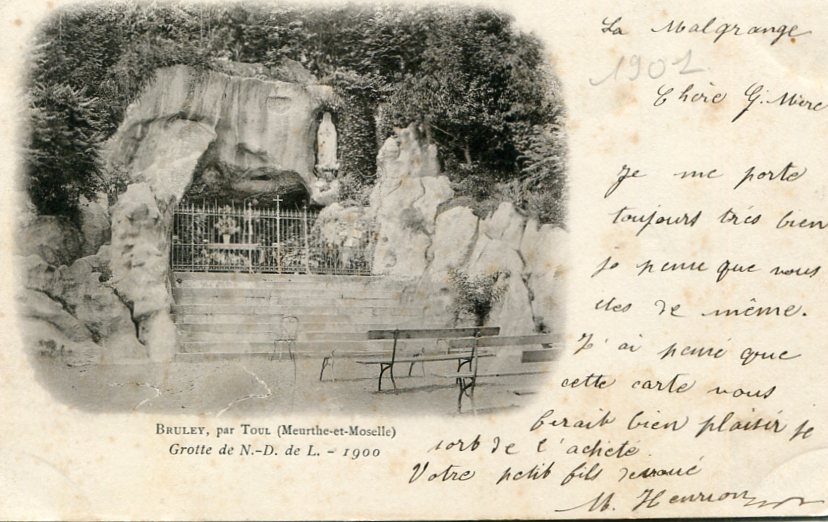 La Malgrange
1901
Chère G. Mère
Je me porte
toujours très bien
je pense que vous
êtes de même.
J'ai pensé que
cette carte vous
ferait bien plaisir je
sort de l'acheté.
Votre petit fils dévoué
M. Henrion
BRULEY, par TOUL (Meurthe-et-Moselle)
Grotte de N.-D. de L. - 1900